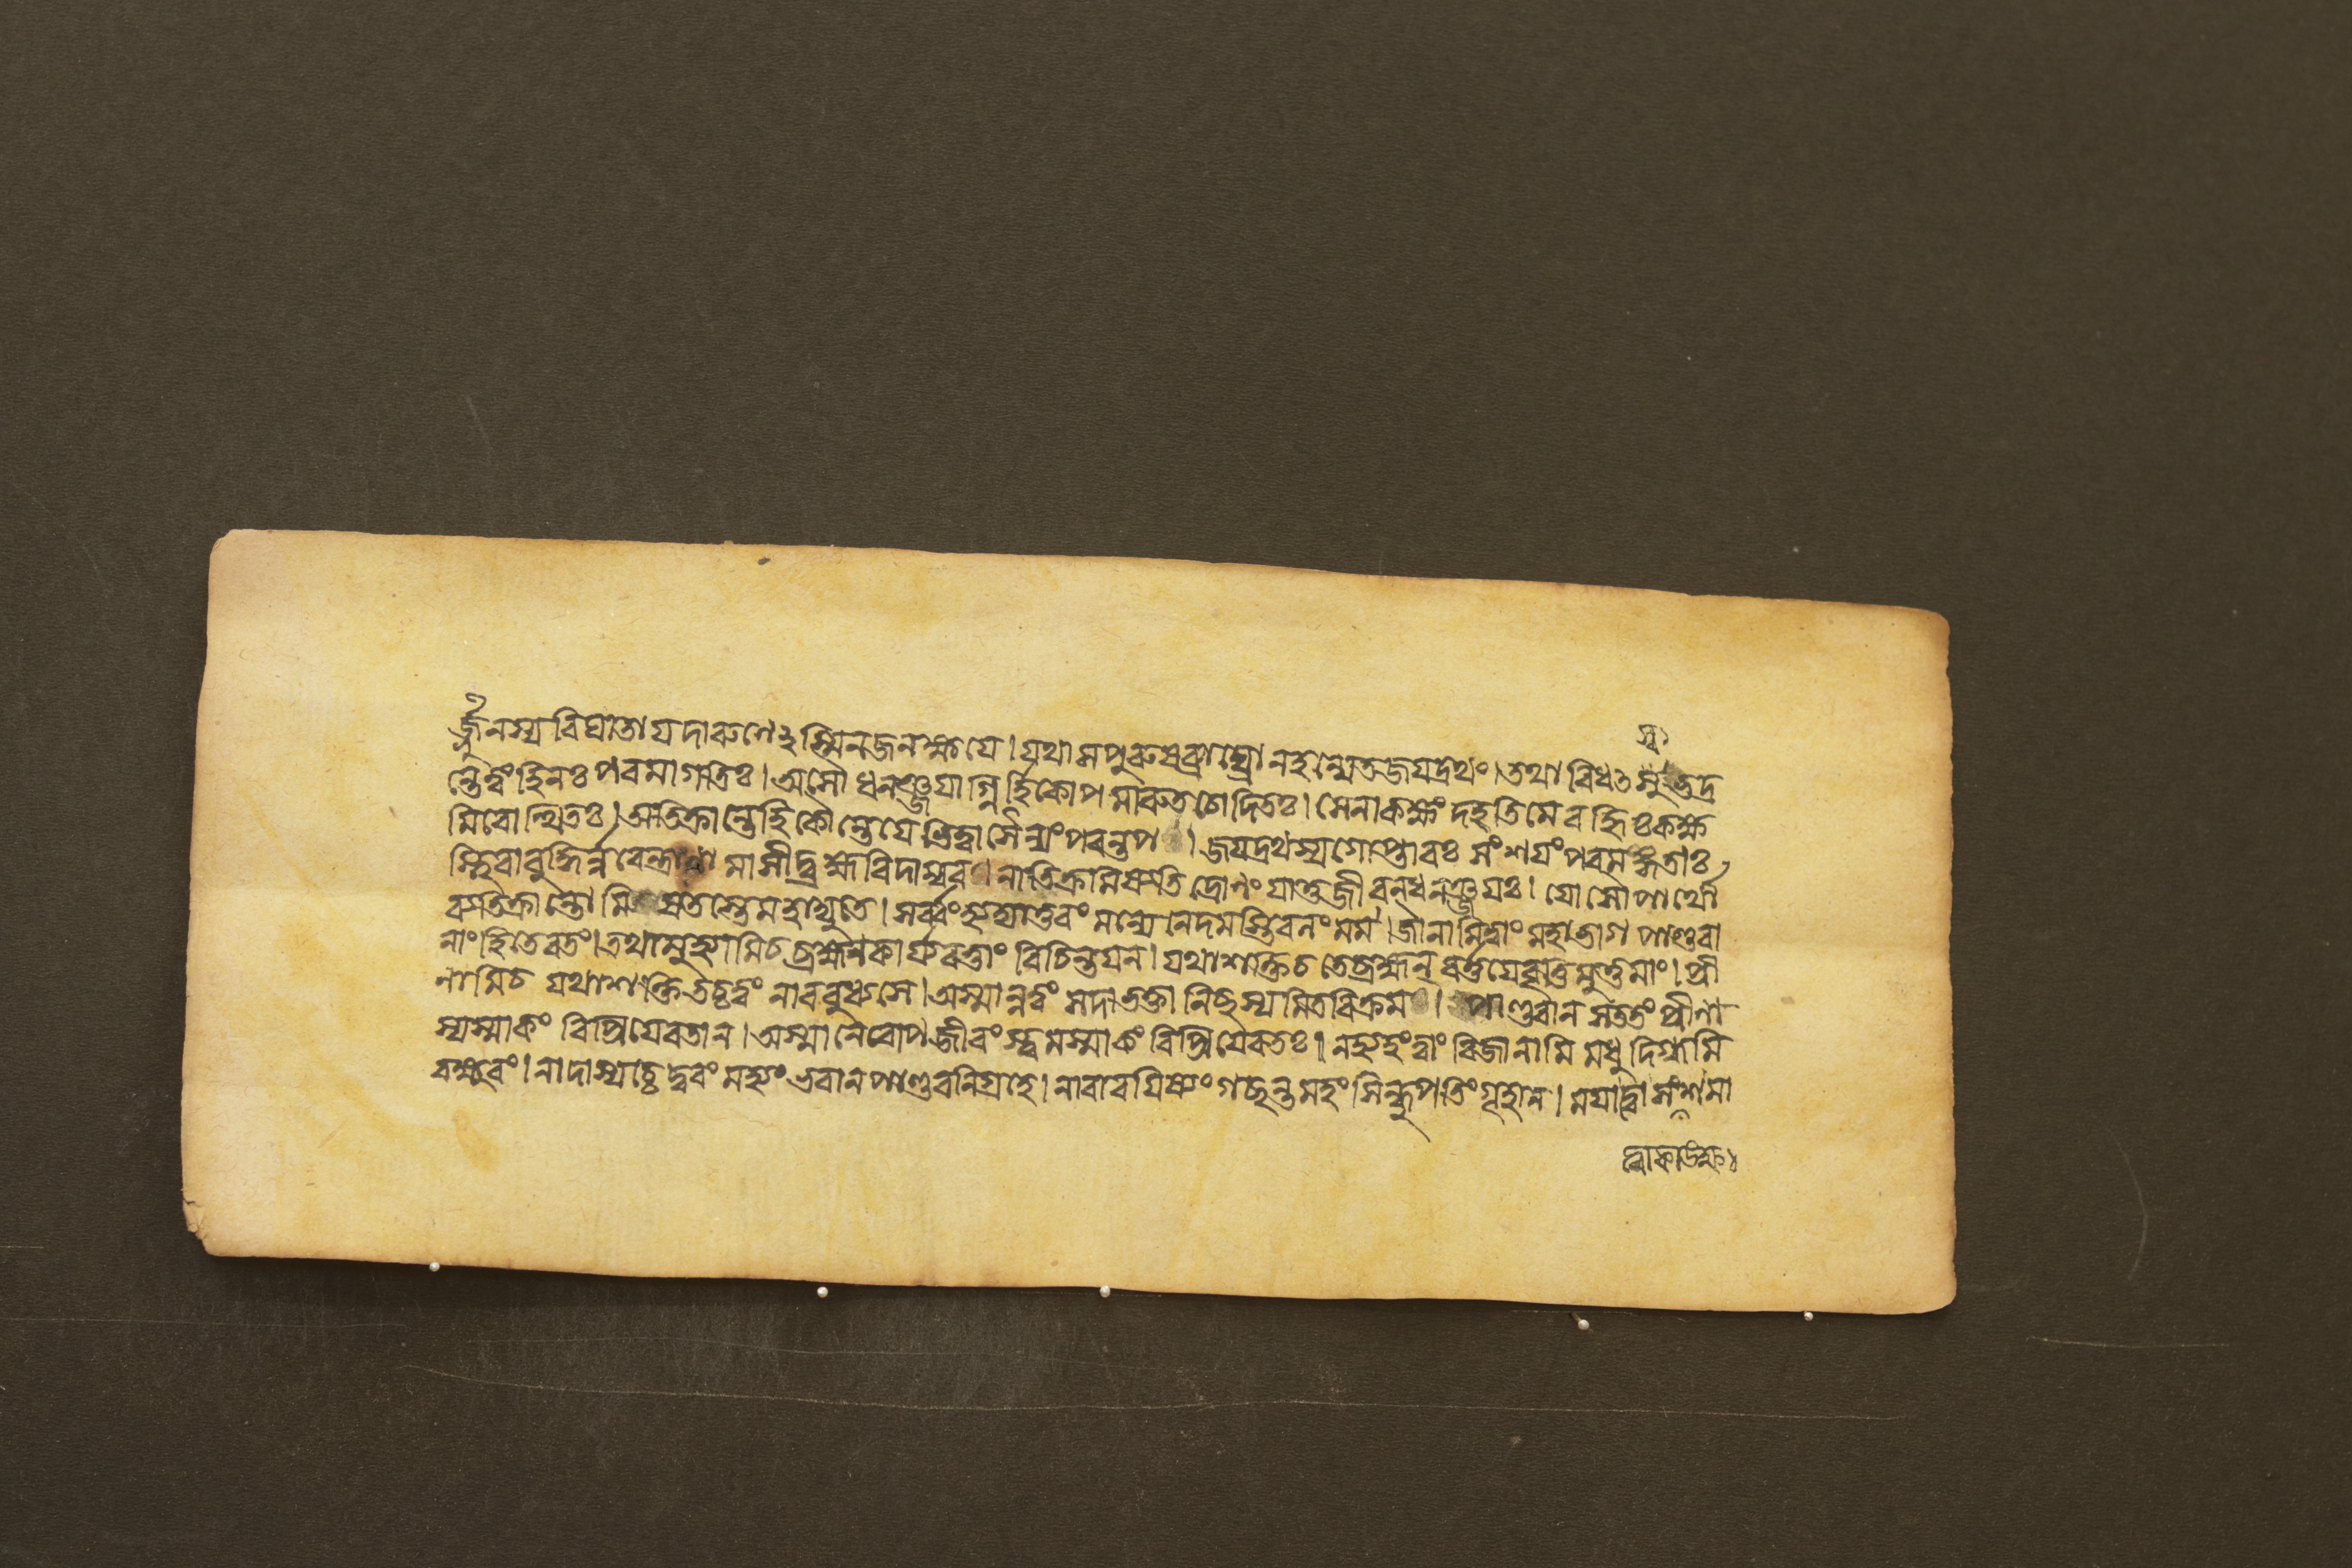 স্ব
র্জ্জুনস্য বিঘাতায দারুণেঽস্মিন জনক্ষযে। যথা স পুরুষব্যাঘ্রো ন হন্যেত জযদ্রথং। তথা বিধৎসু ভদ্র
ন্তে ত্বং হি নঃ পরমা গতিঃ। অসৌ ধনঞ্জযাগ্নির্হি কোপমারুতচোদিতঃ। সেনাকক্ষং দহতি মে বহ্নিঃ কক্ষ
মিবোত্থিতঃ। অতিক্রান্তে হি কৌন্তেযে ভিত্ত্বা সৈন্যং পরন্তপ। জযদ্রথস্য গোপ্তারঃ সংশযং পরমঙ্গতাঃ
স্থিরা বুদ্ধির্ন্নরেন্দ্রাণামাসীদ্ব্রহ্মবিদাম্বর। নাতিক্রমিষ্যতি দ্রোণং যাতু জীবন্ ধনঞ্জযঃ। যোসৌ পার্থো
ব্যতিক্রান্তো মিষতস্তে মহাদ্যুতে। সর্ব্বং হ্যদ্যাতুরং মন্যে নৈদমস্তি বলং মম। জানামি ত্বাং মহাভাগ পাণ্ডবা
নাং হিতে রতং। তথা মুহ্যামি চ ব্রহ্মন কার্যবত্তাং বিচিন্তযন। যথাশক্তি চ তে ব্রহ্মন্ বর্ত্তযে বৃত্তিমুত্তমাং। প্রী
নামি চ যথাশক্তি তচ্চ ত্বং নাববুধ্যসে। অস্মান্ন ত্বং সদা ভক্তানিচ্ছস্যমিতবিক্রম। পাণ্ডবান সততং প্রীণা
স্যস্মাকং বিপ্রিযে রতান। অস্মানেবোপজীবংস্ত্বমস্মাকং বিপ্রিযে রতঃ। ন হ্যহং ত্বাং বিজানামি মধুদিগ্ধমি
ব ক্ষুরং। নাদাস্যচ্চেদ্বরং মহ্যং ভবান পাণ্ডবনিগ্রহে। নাবারযিষ্যং গচ্ছন্তমহং সিন্ধুপতিং গৃহান। মযা ত্বাসংশমা